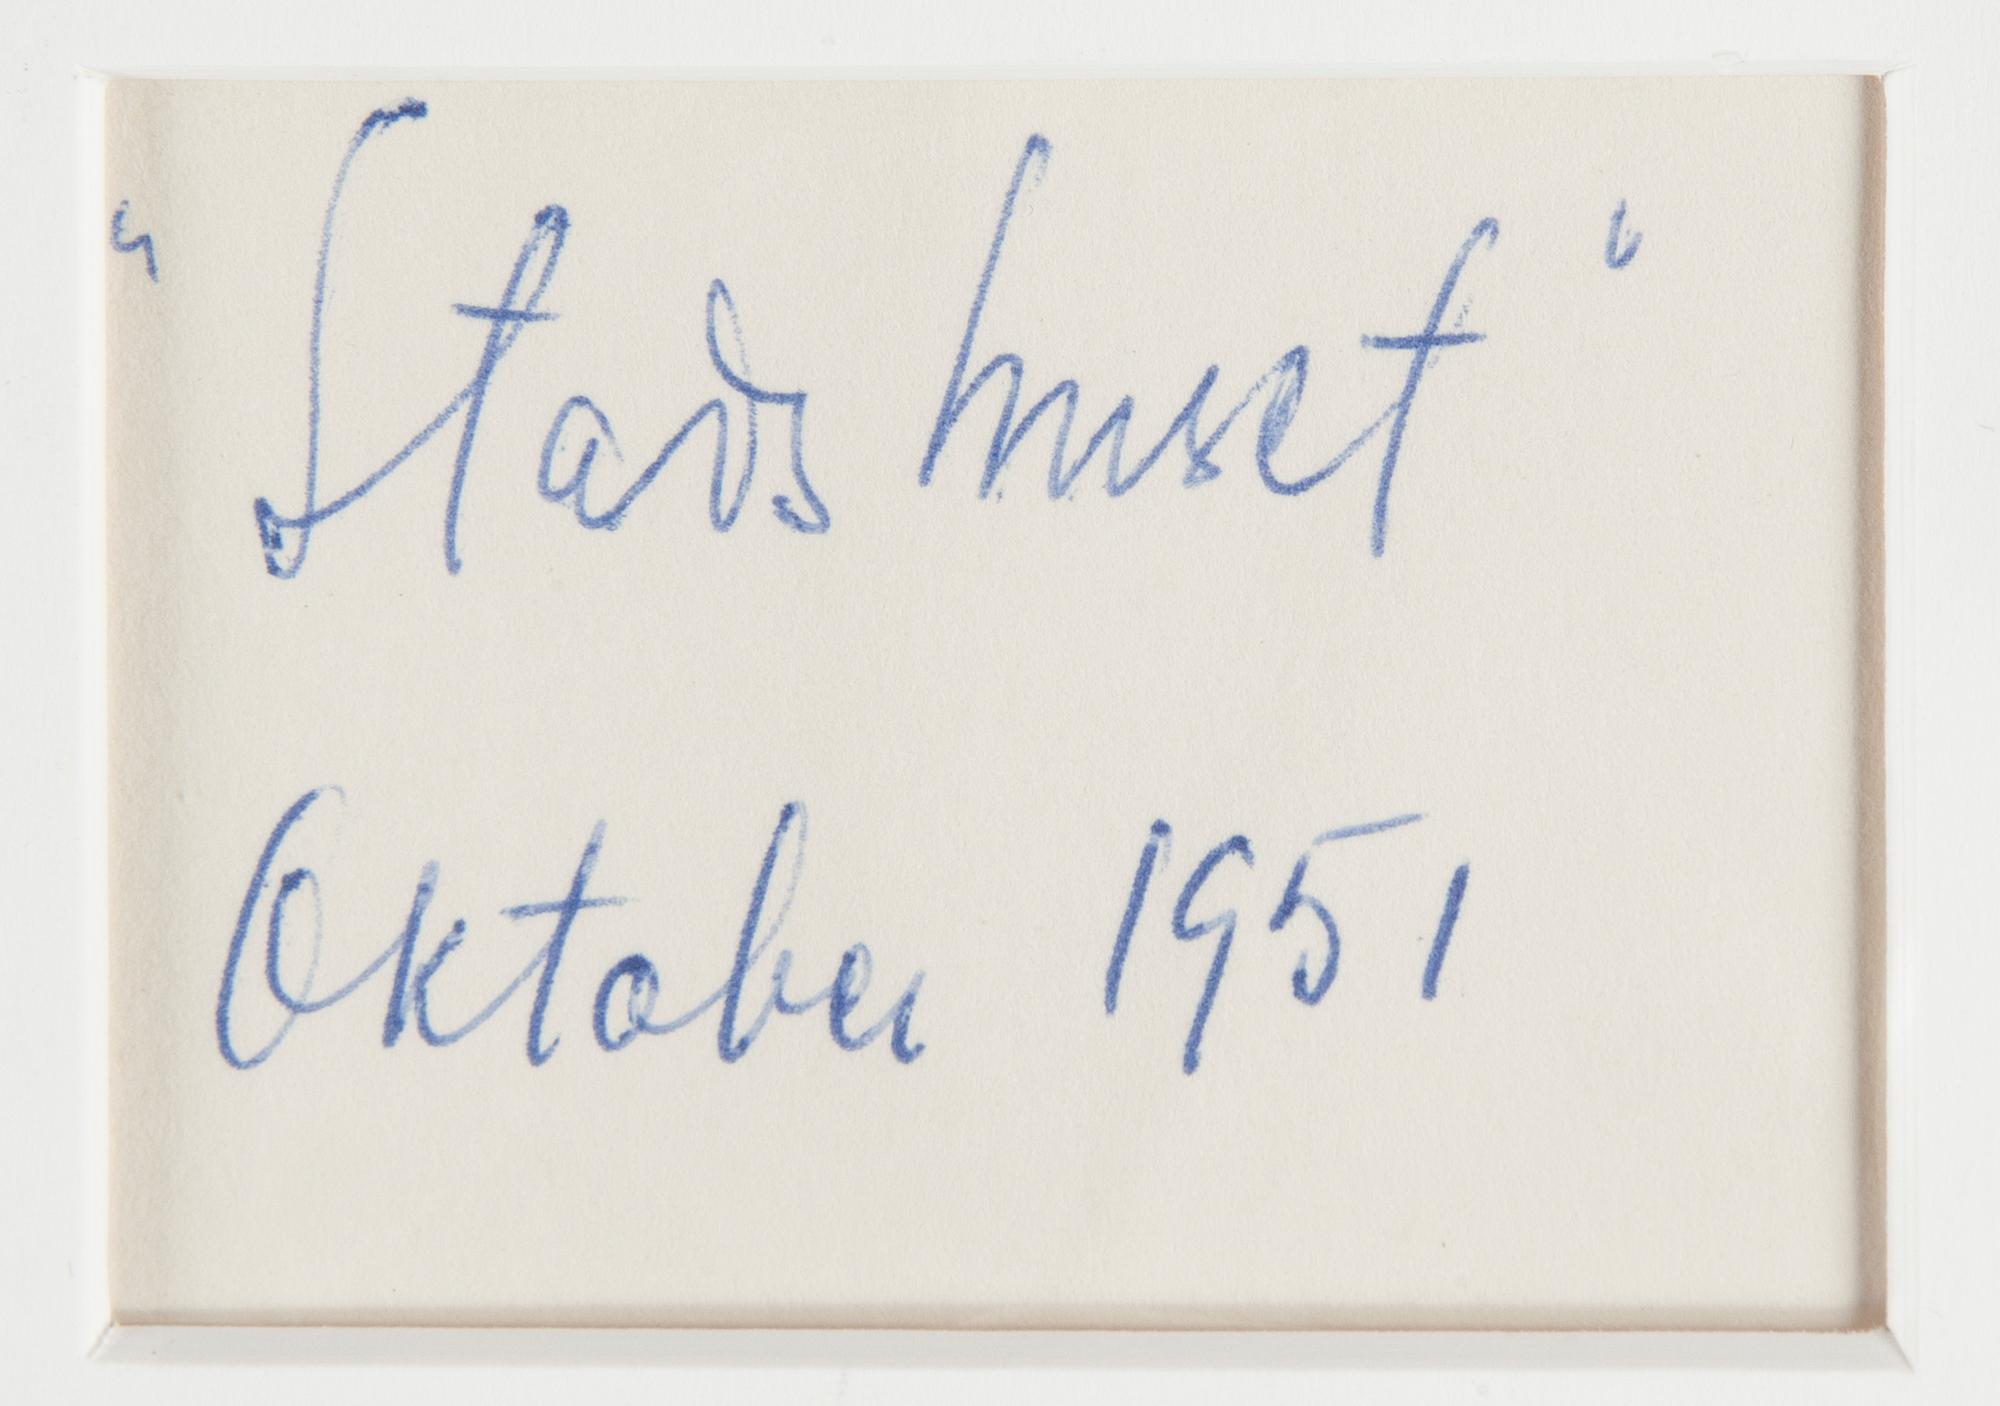 "Stads huset"
Oktober 1951